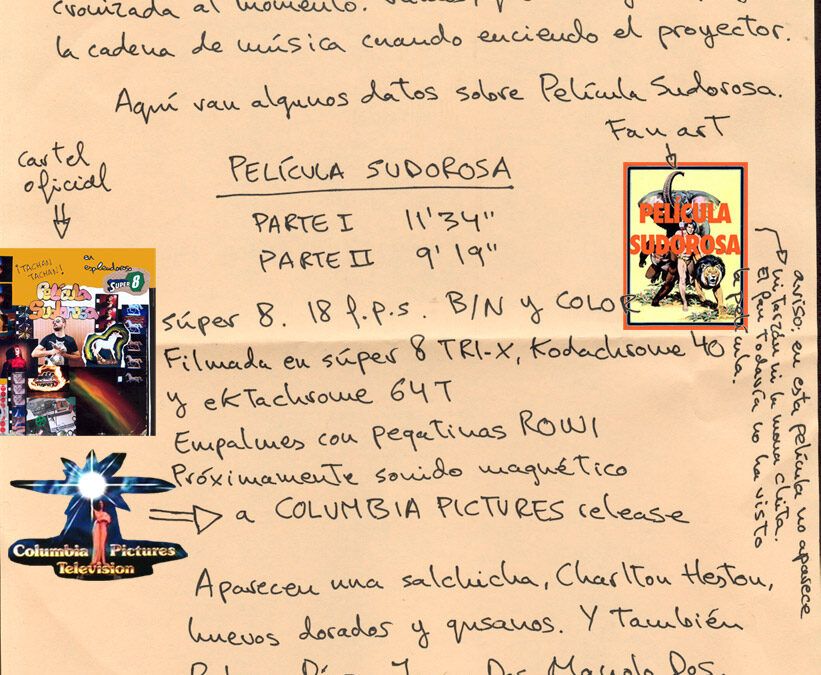 cronizada al momento.
la cadena de música cuando enciendo el proyector.
Aquí van algunos datos sobre Película Sudorosa.
Fan art
cartel
oficial
PELÍCULA SUDOROSA
PARTE I 11'34"
PARTE II 9'19"
PELÍCULA
SUDOROSA
¡TACHAN
TACHAN!
en
esplendoroso
SUPER 8
Película
Sudorosa
súper 8. 18 f.p.s. B/N y COLOR
Filmada en súper 8 TRI-X, Kodachrome 40
y ektachrome 64T
Empalmes con pegatinas ROWI
Próximamente sonido magnético
a COLUMBIA PICTURES release
Columbia Pictures
Television
aviso: en esta película no aparece
ni Tarzán ni la mona Chita.
El Pau todavía no ha visto
la película.
Aparecen una salchicha, Charlton Heston,
huevos dorados y gusanos. Y también